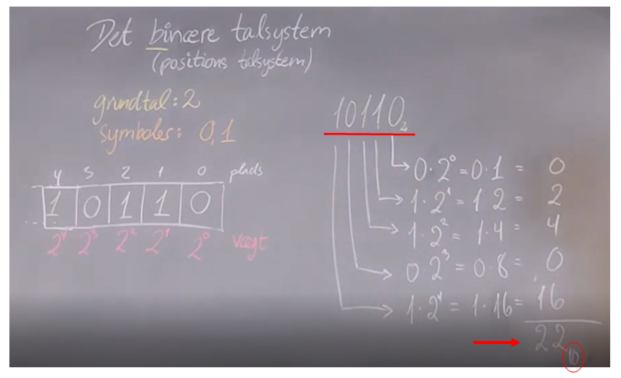 Det binære talsystem
(positions talsystem)
grundtal: 2
Symboler: 0,1
4 3 2 1 0 plads
1 0 1 1 0
2⁴ 2³ 2² 2¹ 2⁰ vægt
10110₂
0·2⁰=0·1= 0
1·2¹=1·2= 2
1·2²=1·4= 4
0·2³=0·8= 0
1·2⁴=1·16= 16
22₁₀